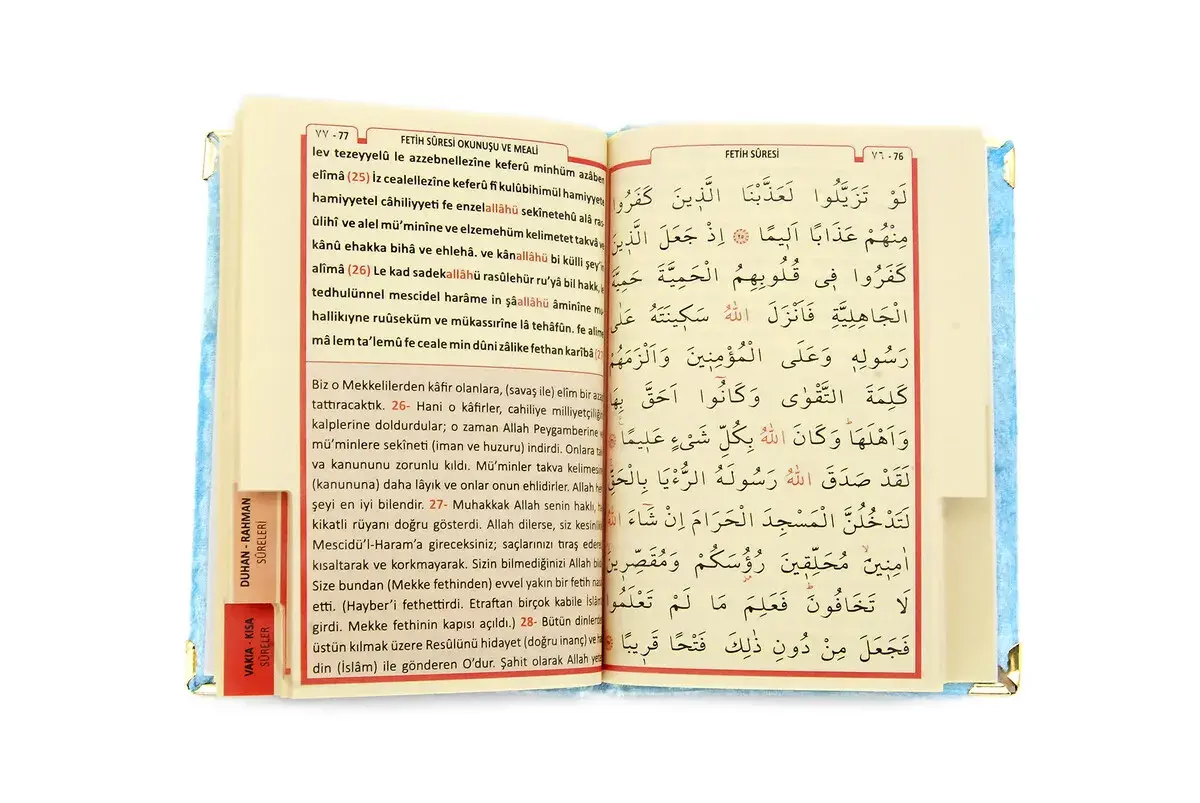 ٧٧ - 77
FETİH SÛRESİ OKUNUŞU VE MEALİ
lev tezeyyelû le azzebnellezîne keferû minhüm azâben
elîmâ (25) İz cealellezîne keferû fî kulûbihimül hamiyyete
hamiyyetel câhiliyyeti fe enzelallâhü sekînetehû alâ ras-
ûlihî ve alel mü’minîne ve elzemehüm kelimetet takvâ ve
kânû ehakka bihâ ve ehlehâ. ve kânallâhü bi külli şey’in
alîmâ (26) Le kad sadekallâhü rasûlehür ru’yâ bil hakk,
tedhulünnel mescidel harâme in şâallâhü âminîne
hallikıyne ruûseküm ve mükassırîne lâ tehâfûn. fe alime
mâ lem ta’lemû fe ceale min dûni zâlike fethan karîbâ
Biz o Mekkelilerden kâfir olanlara, (savaş ile) elîm bir
tattıracaktık. 26- Hani o kâfirler, cahiliye milliyetçiliğini
kalplerine doldurdular; o zaman Allah Peygamberine
mü’minlere sekîneti (iman ve huzuru) indirdi. Onlara
va kanununu zorunlu kıldı. Mü’minler takva kelimesine
(kanununa) daha lâyık ve onlar onun ehlidirler. Allah
şeyi en iyi bilendir. 27- Muhakkak Allah senin haklı,
kikatli rüyanı doğru gösterdi. Allah dilerse, siz kesinlikle
Mescidü’l-Haram’a gireceksiniz; saçlarınızı tıraş ederek
kısaltarak ve korkmayarak. Sizin bilmediğinizi Allah
Size bundan (Mekke fethinden) evvel yakın bir fetih
etti. (Hayber’i fethettirdi. Etraftan birçok kabile İslâm’a
girdi. Mekke fethinin kapısı açıldı.) 28- Bütün dinlerden
üstün kılmak üzere Resûlünü hidayet (doğru inanç) ve
din (İslâm) ile gönderen O’dur. Şahit olarak Allah
DUHAN - RAHMAN
SÛRELERİ
VAKIA - KISA
SÛRELER
FETİH SÛRESİ
٧٦ - 76
لَوْ تَزَيَّلُوا لَعَذَّبْنَا الَّذ۪ينَ كَفَرُوا
مِنْهُمْ عَذَابًا اَل۪يمًا ﴿٢٥﴾ اِذْ جَعَلَ الَّذ۪ينَ
كَفَرُوا ف۪ي قُلُوبِهِمُ الْحَمِيَّةَ حَمِيَّةَ
الْجَاهِلِيَّةِ فَاَنْزَلَ اللّٰهُ سَك۪ينَتَهُ عَلٰى
رَسُولِه۪ وَعَلَى الْمُؤْمِن۪ينَ وَاَلْزَمَهُمْ
كَلِمَةَ التَّقْوٰى وَكَانُٓوا اَحَقَّ بِهَا
وَاَهْلَهَاۜ وَكَانَ اللّٰهُ بِكُلِّ شَيْءٍ عَل۪يمًا
لَقَدْ صَدَقَ اللّٰهُ رَسُولَهُ الرُّءْيَا بِالْحَقِّ
لَتَدْخُلُنَّ الْمَسْجِدَ الْحَرَامَ اِنْ شَٓاءَ اللّٰهُ
اٰمِن۪ينَۙ مُحَلِّق۪ينَ رُؤُسَكُمْ وَمُقَصِّر۪ينَۙ
لَا تَخَافُونَۜ فَعَلِمَ مَا لَمْ تَعْلَمُوا
فَجَعَلَ مِنْ دُونِ ذٰلِكَ فَتْحًا قَر۪يبًا